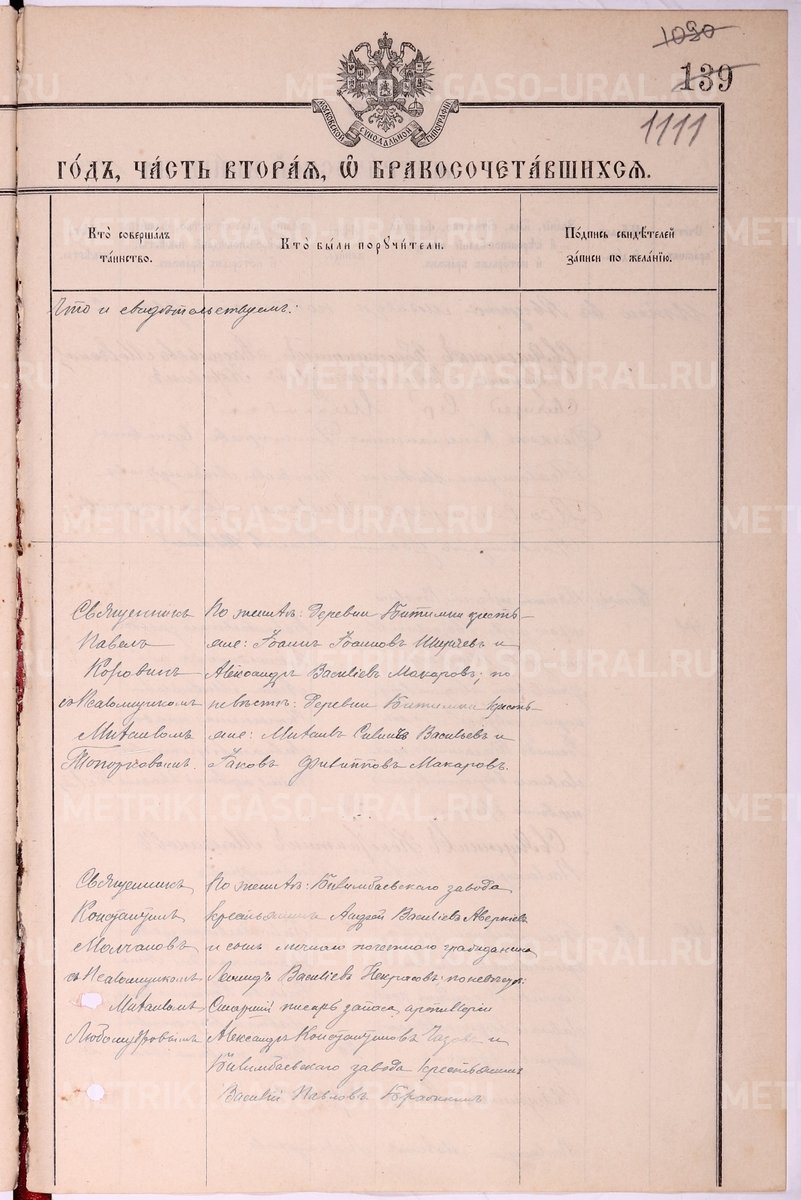 1090
139
1111
МОСКОВСКОЙ СѴНОДАЛЬНОЙ ТИПОГРАФІИ
ГО́ДЪ, ЧА́СТЬ ВТОРА́Я, Ѽ БРАКОСОЧЕТА́ВШИХСЯ.
Кто̀ соверша́лъ
та́инство.
Кто̀ бы́ли поручи́тели.
По́дпись свидѣ́телей
за́писи по жела́нїю.
Что и свидѣтельствуемъ:
Священникъ
Павелъ
Коровинъ
съ Псаломщикомъ
Михаиломъ
Топорковымъ.
По женихѣ: Деревни Битимки кресть-
яне: Іоаннъ Іоанновъ Ширяевъ и
Александръ Васильевъ Макаровъ; по
невѣстѣ: Деревни Битимки кресть-
яне: Михаилъ Васильевъ и
Іаковъ Филипповъ Макаровъ.
Священникъ
Константинъ
Молчановъ
съ Псаломщикомъ
Михаиломъ
Любомудровымъ
По женихѣ: Билимбаевскаго завода
крестьянинъ Андрей Васильевъ Аверкіевъ
и сынъ личнаго почетнаго гражданина
Леонидъ Васильевъ Некрасовъ; по невѣстѣ:
Старшій писарь запаса артиллеріи
Александръ Константиновъ и
Билимбаевскаго завода крестьянинъ
Василій Павловъ
METRIKI.GASO-URAL.RU